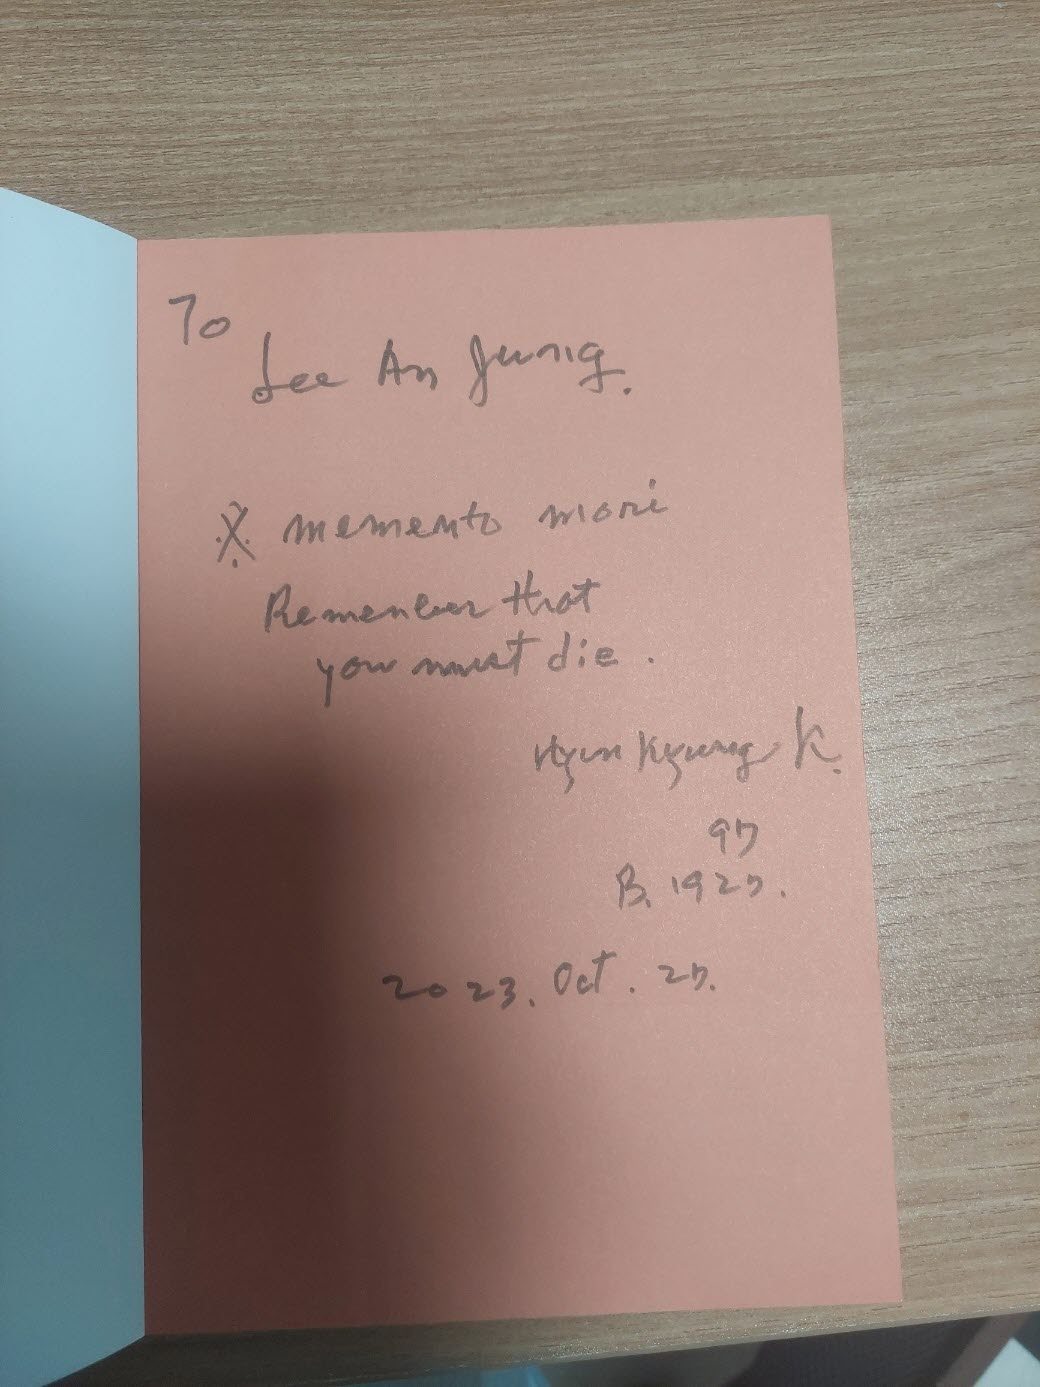 To
Lee An Jung.
※ memento mori
Remember that
you must die.
Hyun Kyung K.
97
B. 1927.
2023. Oct. 27.